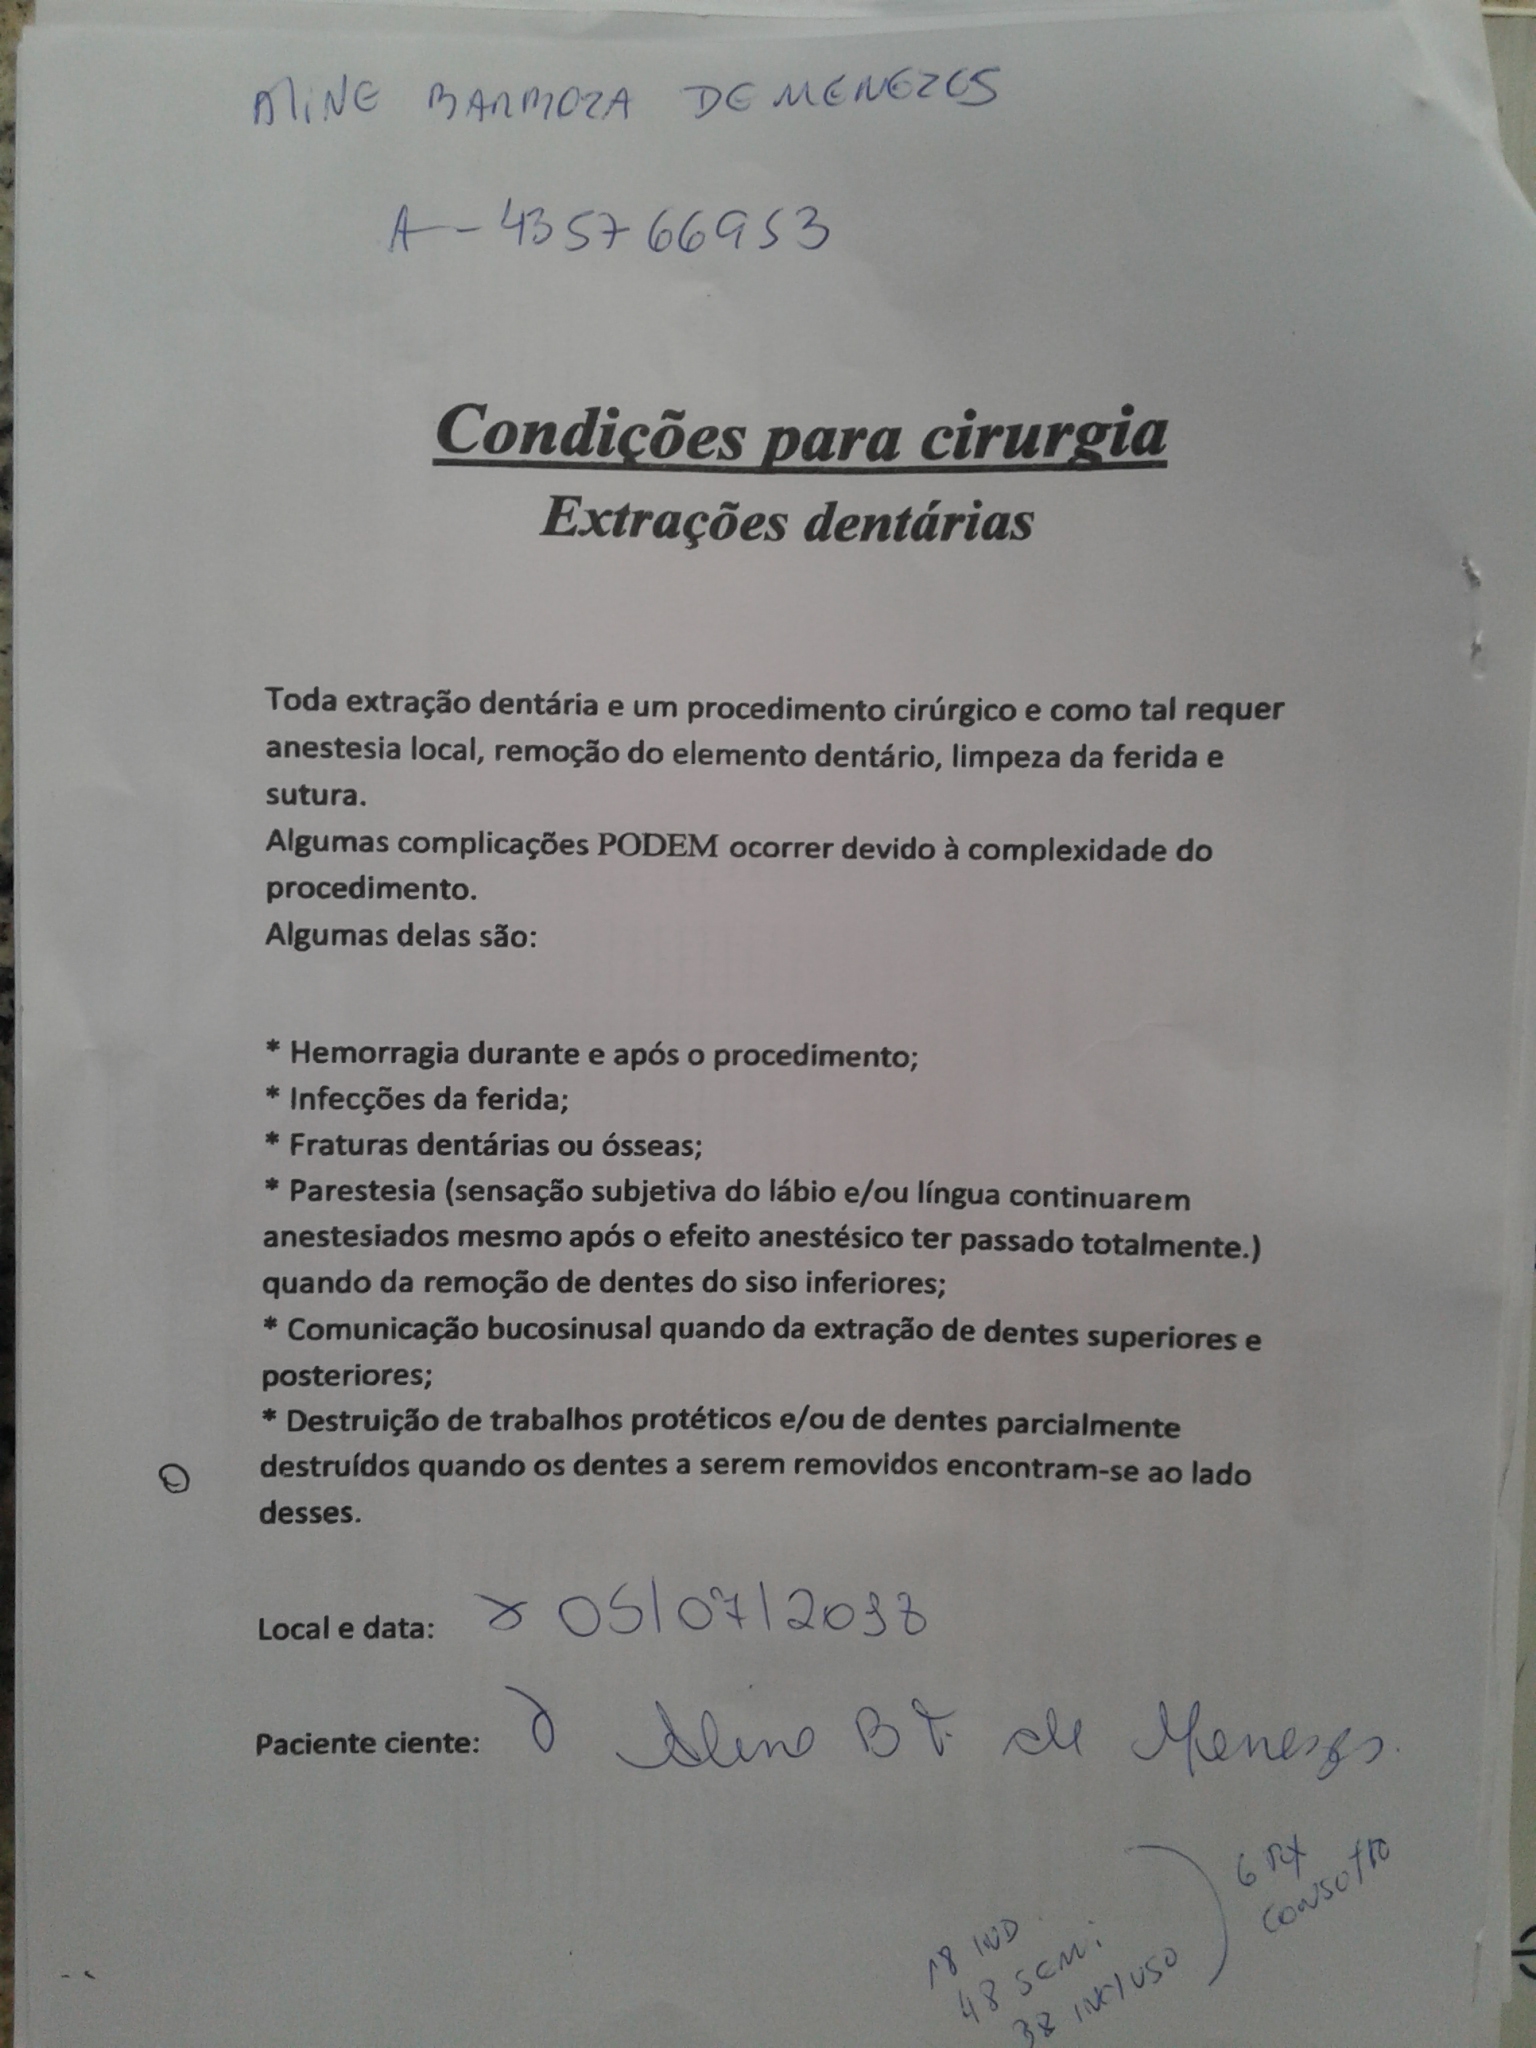 ALINE BARBOZA DE MENEZES
A-435766953
Condições para cirurgia
Extrações dentárias
Toda extração dentária e um procedimento cirúrgico e como tal requer
anestesia local, remoção do elemento dentário, limpeza da ferida e
sutura.
Algumas complicações PODEM ocorrer devido à complexidade do
procedimento.
Algumas delas são:
* Hemorragia durante e após o procedimento;
* Infecções da ferida;
* Fraturas dentárias ou ósseas;
* Parestesia (sensação subjetiva do lábio e/ou língua continuarem
anestesiados mesmo após o efeito anestésico ter passado totalmente.)
quando da remoção de dentes do siso inferiores;
* Comunicação bucosinusal quando da extração de dentes superiores e
posteriores;
* Destruição de trabalhos protéticos e/ou de dentes parcialmente
destruídos quando os dentes a serem removidos encontram-se ao lado
desses.
Local e data: 05/07/2018
Paciente ciente: Aline B de Menezes.
18 IND
48 SEMI
38 INCLUSO
6 RX